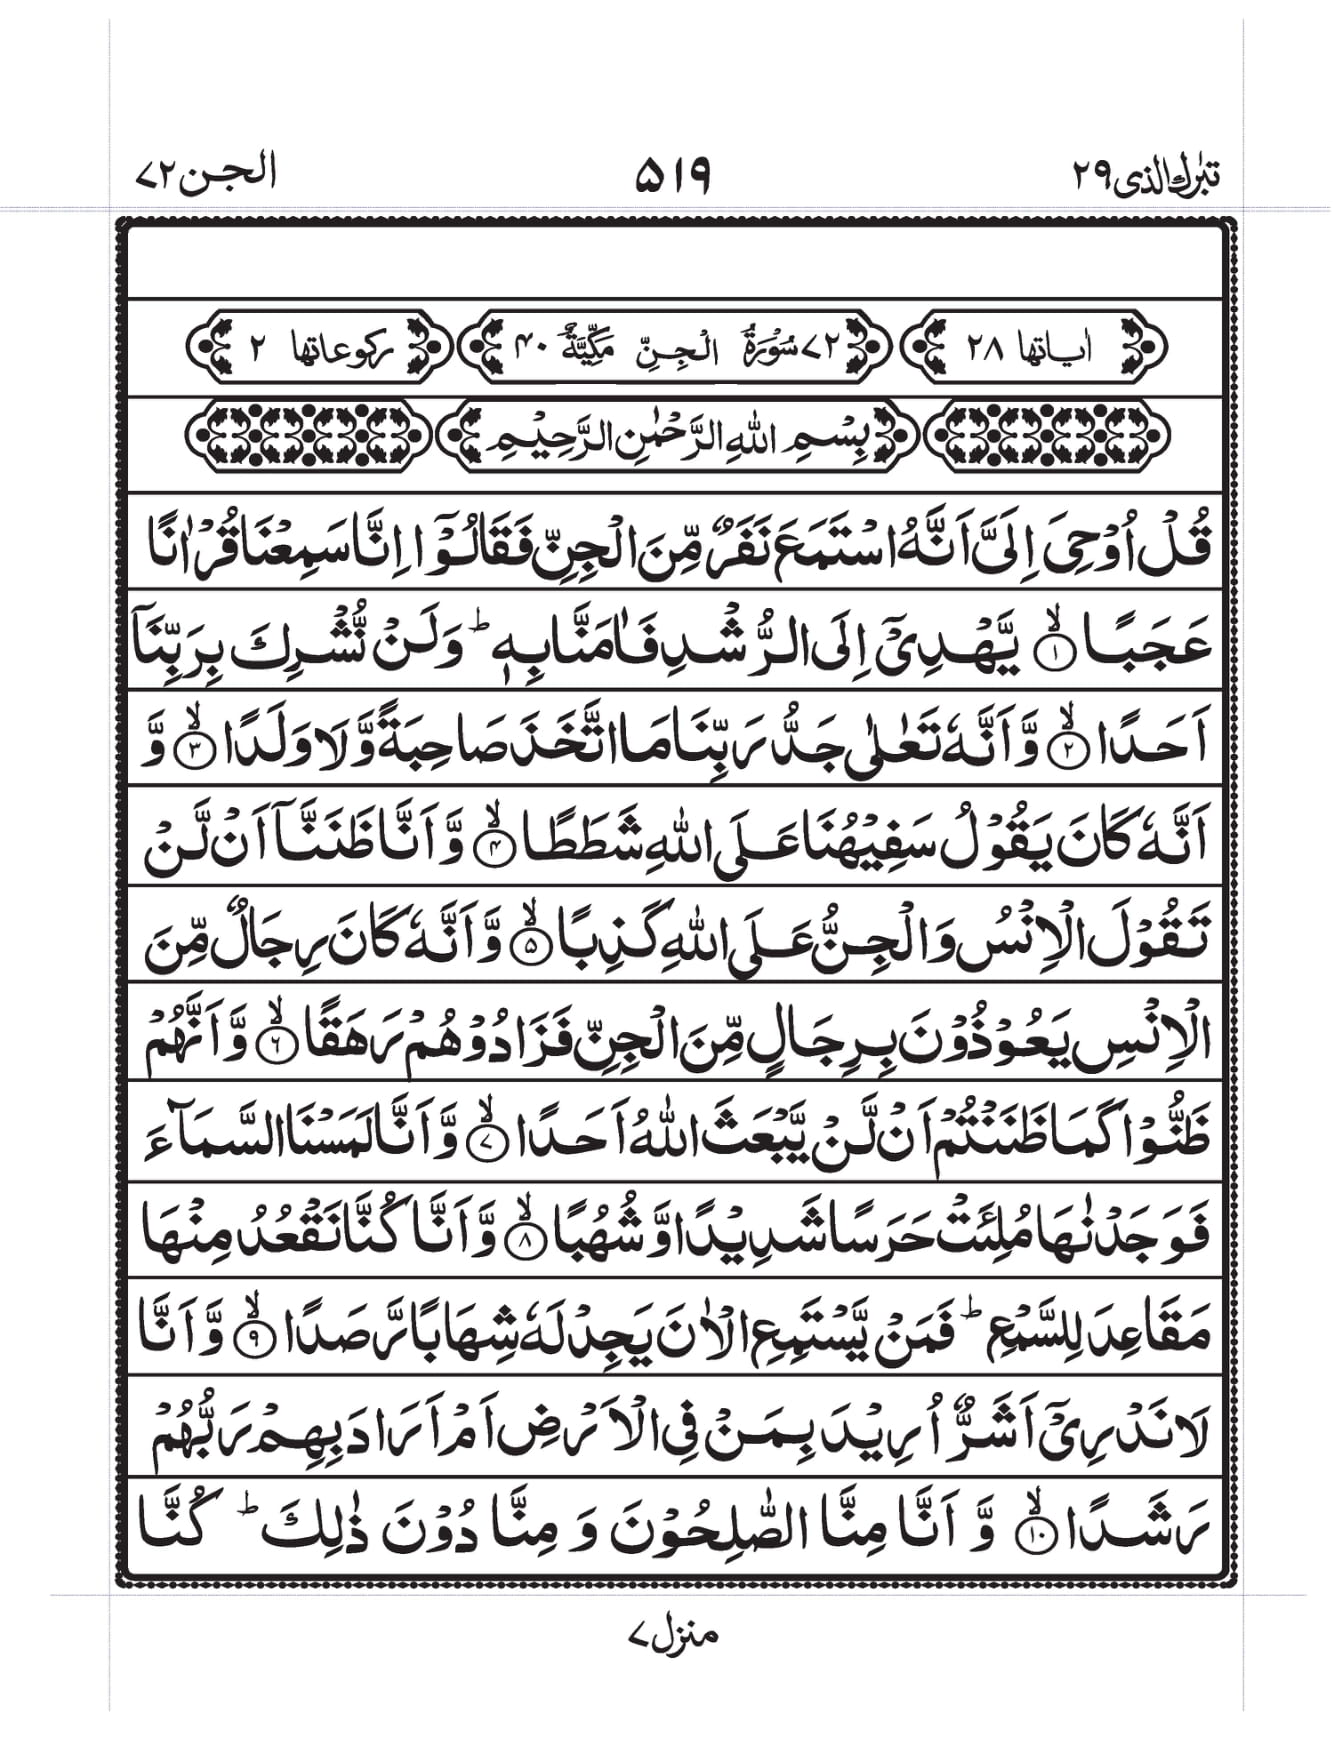 تبٰرك الذی ۲۹
۵۱۹
الجن ۷۲
اٰياتها ۲۸
۷۲ سُوْرَةُ الْجِنِّ مَكِّيَّةٌ ۴۰
ركوعاتها ۲
بِسْمِ اللّٰهِ الرَّحْمٰنِ الرَّحِيْمِ
قُلْ اُوْحِيَ اِلَيَّ اَنَّهُ اسْتَمَعَ نَفَرٌ مِّنَ الْجِنِّ فَقَالُوْۤا اِنَّا سَمِعْنَا قُرْاٰنًا
عَجَبًا ۙ﴿۱﴾ يَّهْدِيْۤ اِلَى الرُّشْدِ فَاٰمَنَّا بِهٖ ؕ وَلَنْ نُّشْرِكَ بِرَبِّنَاۤ
اَحَدًا ۙ﴿۲﴾ وَّاَنَّهٗ تَعٰلٰى جَدُّ رَبِّنَا مَا اتَّخَذَ صَاحِبَةً وَّلَا وَلَدًا ۙ﴿۳﴾ وَّ
اَنَّهٗ كَانَ يَقُوْلُ سَفِيْهُنَا عَلَى اللّٰهِ شَطَطًا ۙ﴿۴﴾ وَّاَنَّا ظَنَنَّاۤ اَنْ لَّنْ
تَقُوْلَ الْاِنْسُ وَالْجِنُّ عَلَى اللّٰهِ كَذِبًا ۙ﴿۵﴾ وَّاَنَّهٗ كَانَ رِجَالٌ مِّنَ
الْاِنْسِ يَعُوْذُوْنَ بِرِجَالٍ مِّنَ الْجِنِّ فَزَادُوْهُمْ رَهَقًا ۙ﴿۶﴾ وَّاَنَّهُمْ
ظَنُّوْا كَمَا ظَنَنْتُمْ اَنْ لَّنْ يَّبْعَثَ اللّٰهُ اَحَدًا ۙ﴿۷﴾ وَّاَنَّا لَمَسْنَا السَّمَآءَ
فَوَجَدْنٰهَا مُلِئَتْ حَرَسًا شَدِيْدًا وَّشُهُبًا ۙ﴿۸﴾ وَّاَنَّا كُنَّا نَقْعُدُ مِنْهَا
مَقَاعِدَ لِلسَّمْعِ ؕ فَمَنْ يَّسْتَمِعِ الْاٰنَ يَجِدْ لَهٗ شِهَابًا رَّصَدًا ۙ﴿۹﴾ وَّاَنَّا
لَا نَدْرِيْۤ اَشَرٌّ اُرِيْدَ بِمَنْ فِي الْاَرْضِ اَمْ اَرَادَ بِهِمْ رَبُّهُمْ
رَشَدًا ۙ﴿۱۰﴾ وَّاَنَّا مِنَّا الصّٰلِحُوْنَ وَمِنَّا دُوْنَ ذٰلِكَ ؕ كُنَّا
منزل ۷